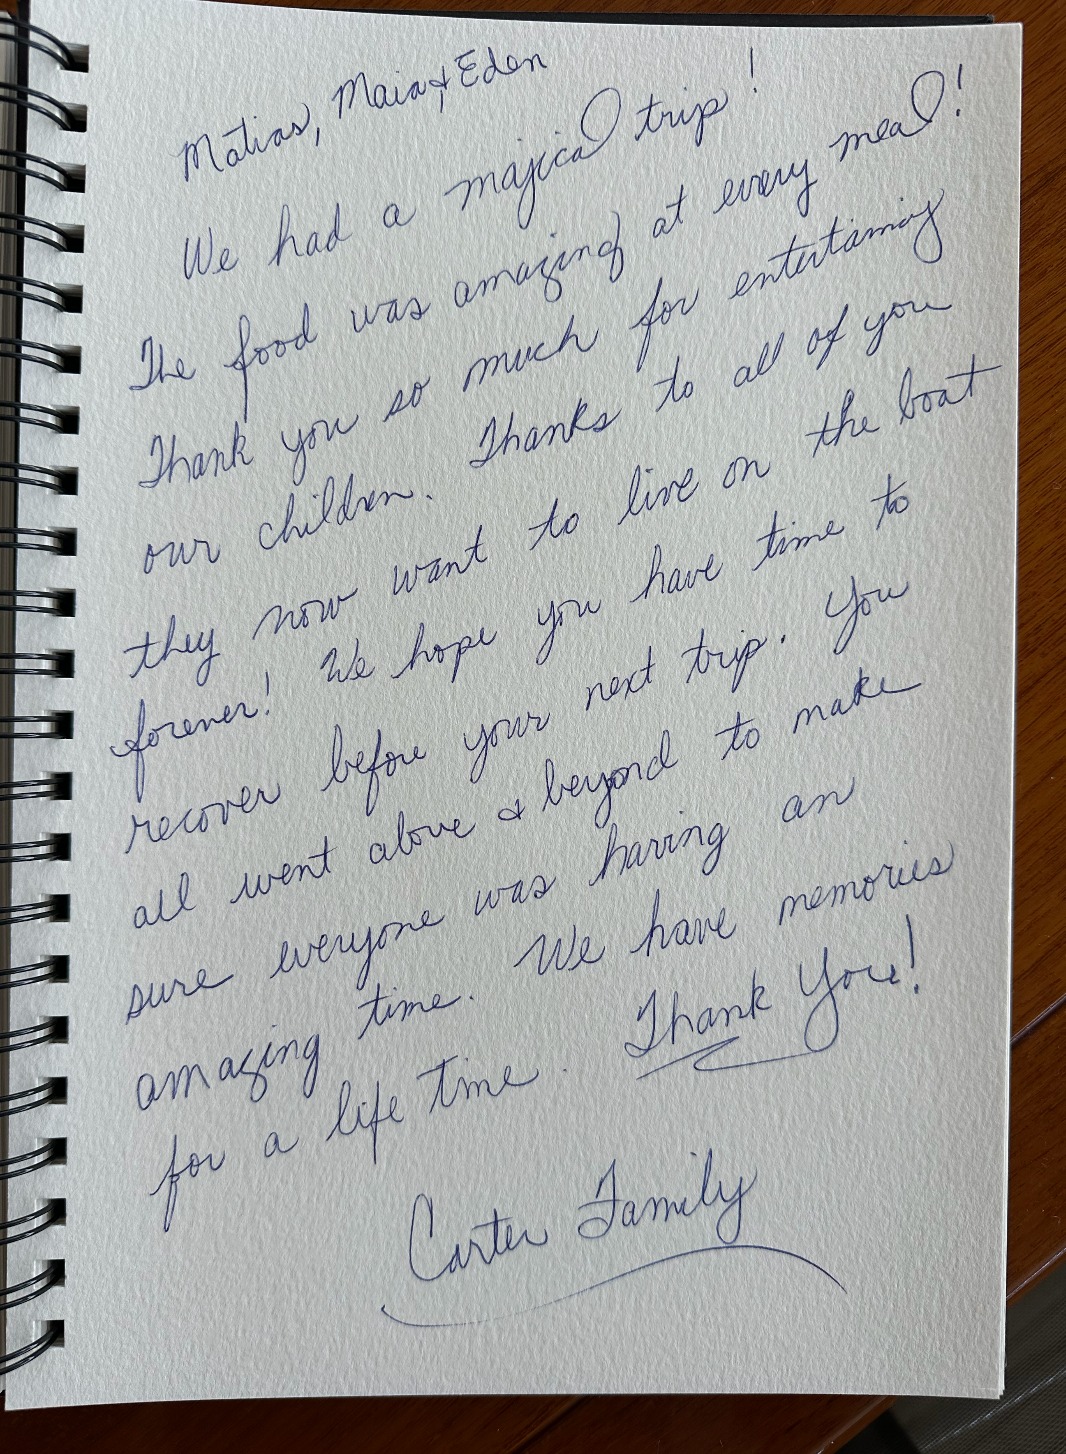 Matias, Maia & Eden
We had a majical trip!
The food was amazing at every meal!
Thank you so much for entertaining
our children. Thanks to all of you
they now want to live on the boat
forever! We hope you have time to
recover before your next trip. You
all went above & beyond to make
sure everyone was having an
amazing time. We have memories
for a life time. Thank You!
Carter Family